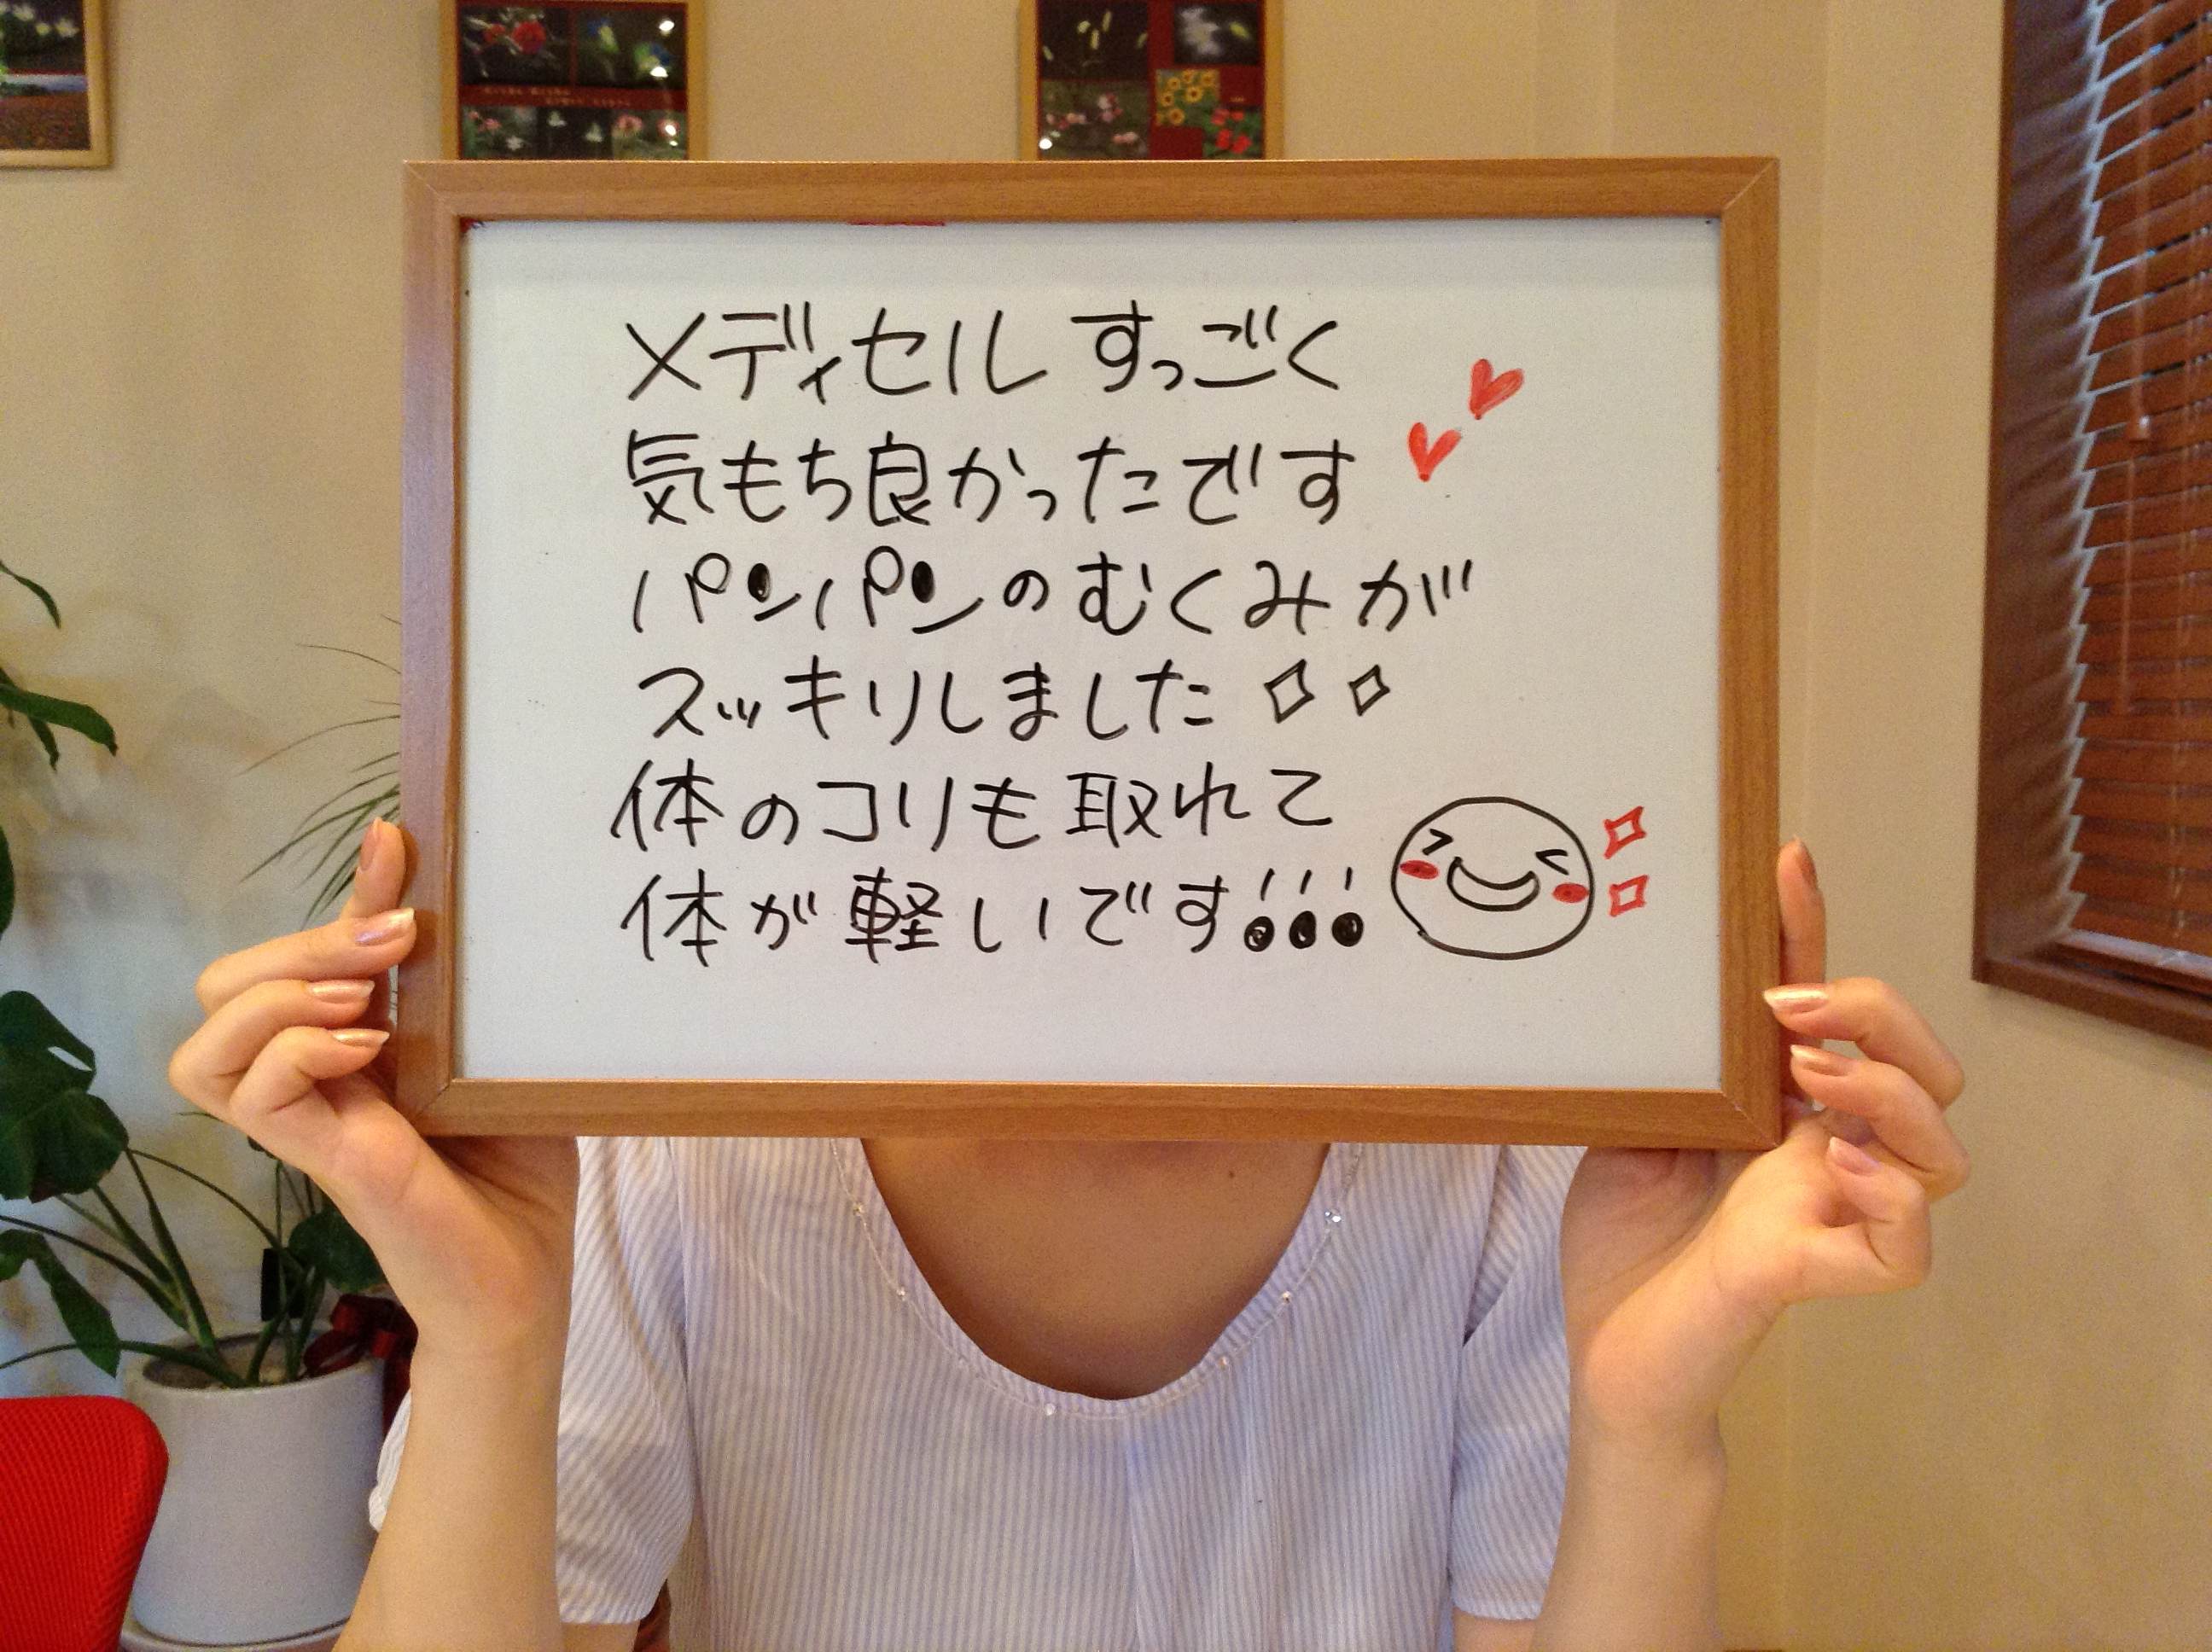 メディセルすっごく
気もち良かったです
パンパンのむくみが
スッキリしました
体のコリも取れて
体が軽いです!!!